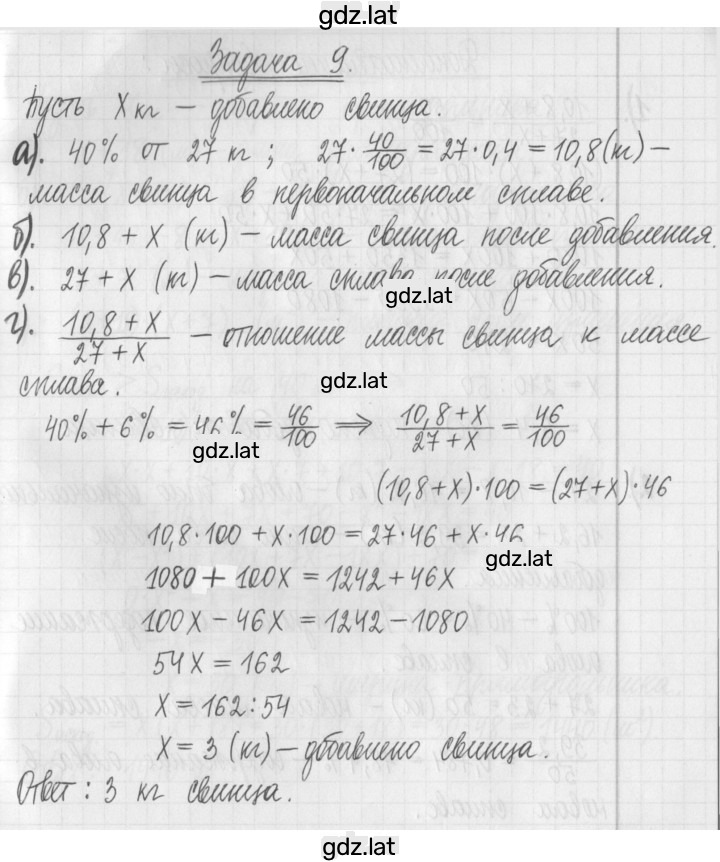 gdz.lat
Задача 9.
Пусть x кг – добавлено свинца.
а). 40% от 27 кг ; 27 · 40/100 = 27 · 0,4 = 10,8 (кг) –
масса свинца в первоначальном сплаве.
б). 10,8 + x (кг) – масса свинца после добавления.
в). 27 + x (кг) – масса сплава после добавления.
gdz.lat
г). (10,8 + x)/(27 + x) – отношение массы свинца к массе
сплава.
gdz.lat
40% + 6% = 46% = 46/100 ⟹ (10,8 + x)/(27 + x) = 46/100
gdz.lat
(10,8 + x) · 100 = (27 + x) · 46
10,8 · 100 + x · 100 = 27 · 46 + x · 46
gdz.lat
1080 + 100x = 1242 + 46x
100x – 46x = 1242 – 1080
54x = 162
x = 162 : 54
x = 3 (кг) – добавлено свинца.
Ответ : 3 кг свинца.
gdz.lat